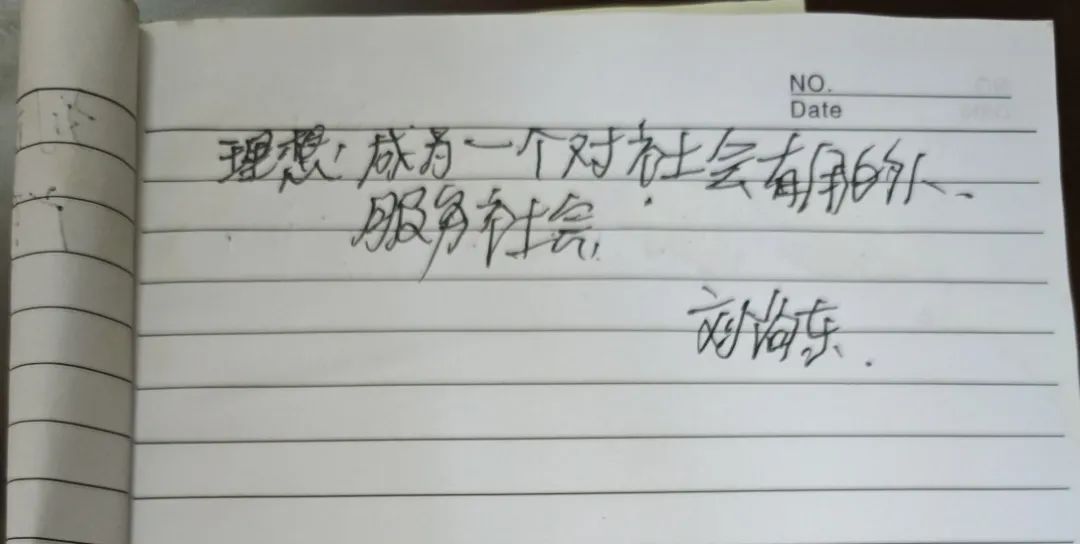 NO.
Date
理想：成为一个对社会有用的人、
服务社会.
刘尚东.